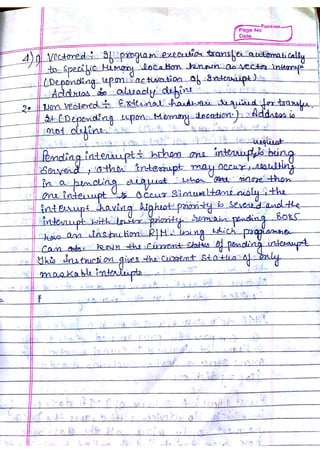 Page No.
Date
4) 1. Vectored :- If program execution transfer automatically
to specific Memory location known as vector interrup
(Depending upon activation of Interrupt).
Address is already define
2. Non Vectored :- External hardware required for transfer
It (Depending upon Memory location.) Address is
not define.
request
Pending interrupt :- When one interrupt is being
served, other interrupt may occur, resulting
in a pending request. When more than
one interrupt occur simultaneously, the
interrupt having highest priority is severed and the
interrupt with lower priority remain pending. 8085
has an instruction RIM using which programmer
can know the current status of pending interrupt
This instruction gives the current status of only
maskable interrupts